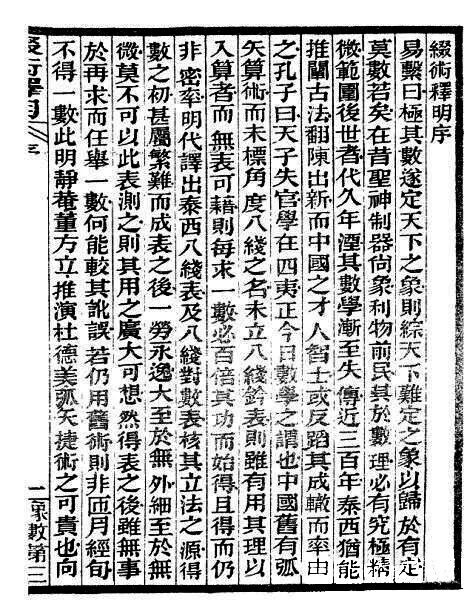 綴術釋明序
易繫曰極其數遂定天下之象則綜天下難定之象以歸於有定
莫數若矣在昔聖神制器尚象利物前民其於數理必有究極精
微範圍後世者代久年湮其數學漸至失傳近三百年泰西猶能
推闡古法翻陳出新而中國之才人智士或反蹈其成轍而率由
之孔子曰天子失官學在四夷正今日數學之謂也中國舊有弧
矢算術而未標角度八綫之名未立八綫鈐表則雖有用其理以
入算者而無表可藉則每求一數必百倍其功而始得且得而仍
非密率明代譯出泰西八綫表及八綫對數表核其立法之源得
數之初甚屬繁難而成表之後一勞永逸大至於無外細至於無
微莫不可以此表測之則其用之廣大可想然得表之後雖無事
於再求而任舉一數何能較其訛誤若仍用舊術則非匝月經旬
不得一數此明靜菴董方立推演杜德美弧矢捷術之可貴也向
綴術釋明
序
一
象數第二